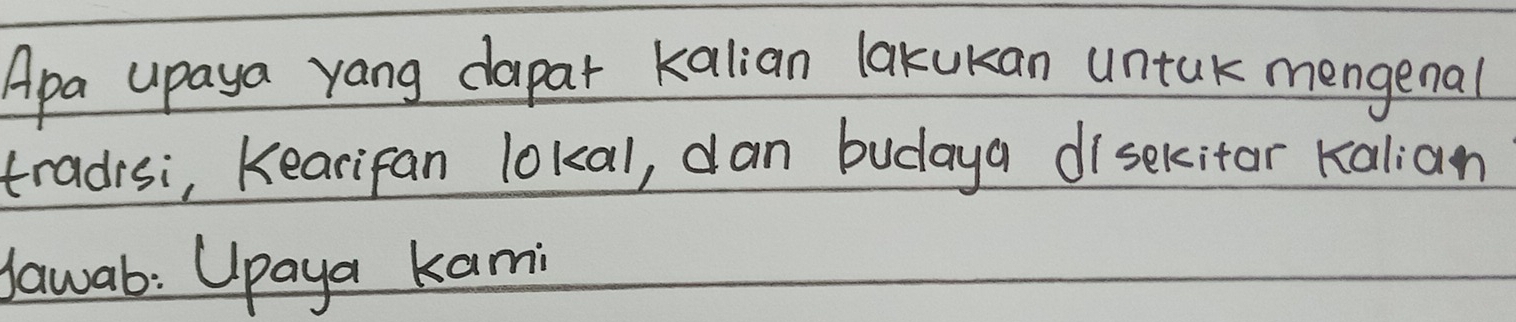 Apa upaya yang dapat kalian lakukan untuk mengenal
tradisi, Kearifan lokal, dan budaya di sekitar kalian
Jawab: Upaya kami